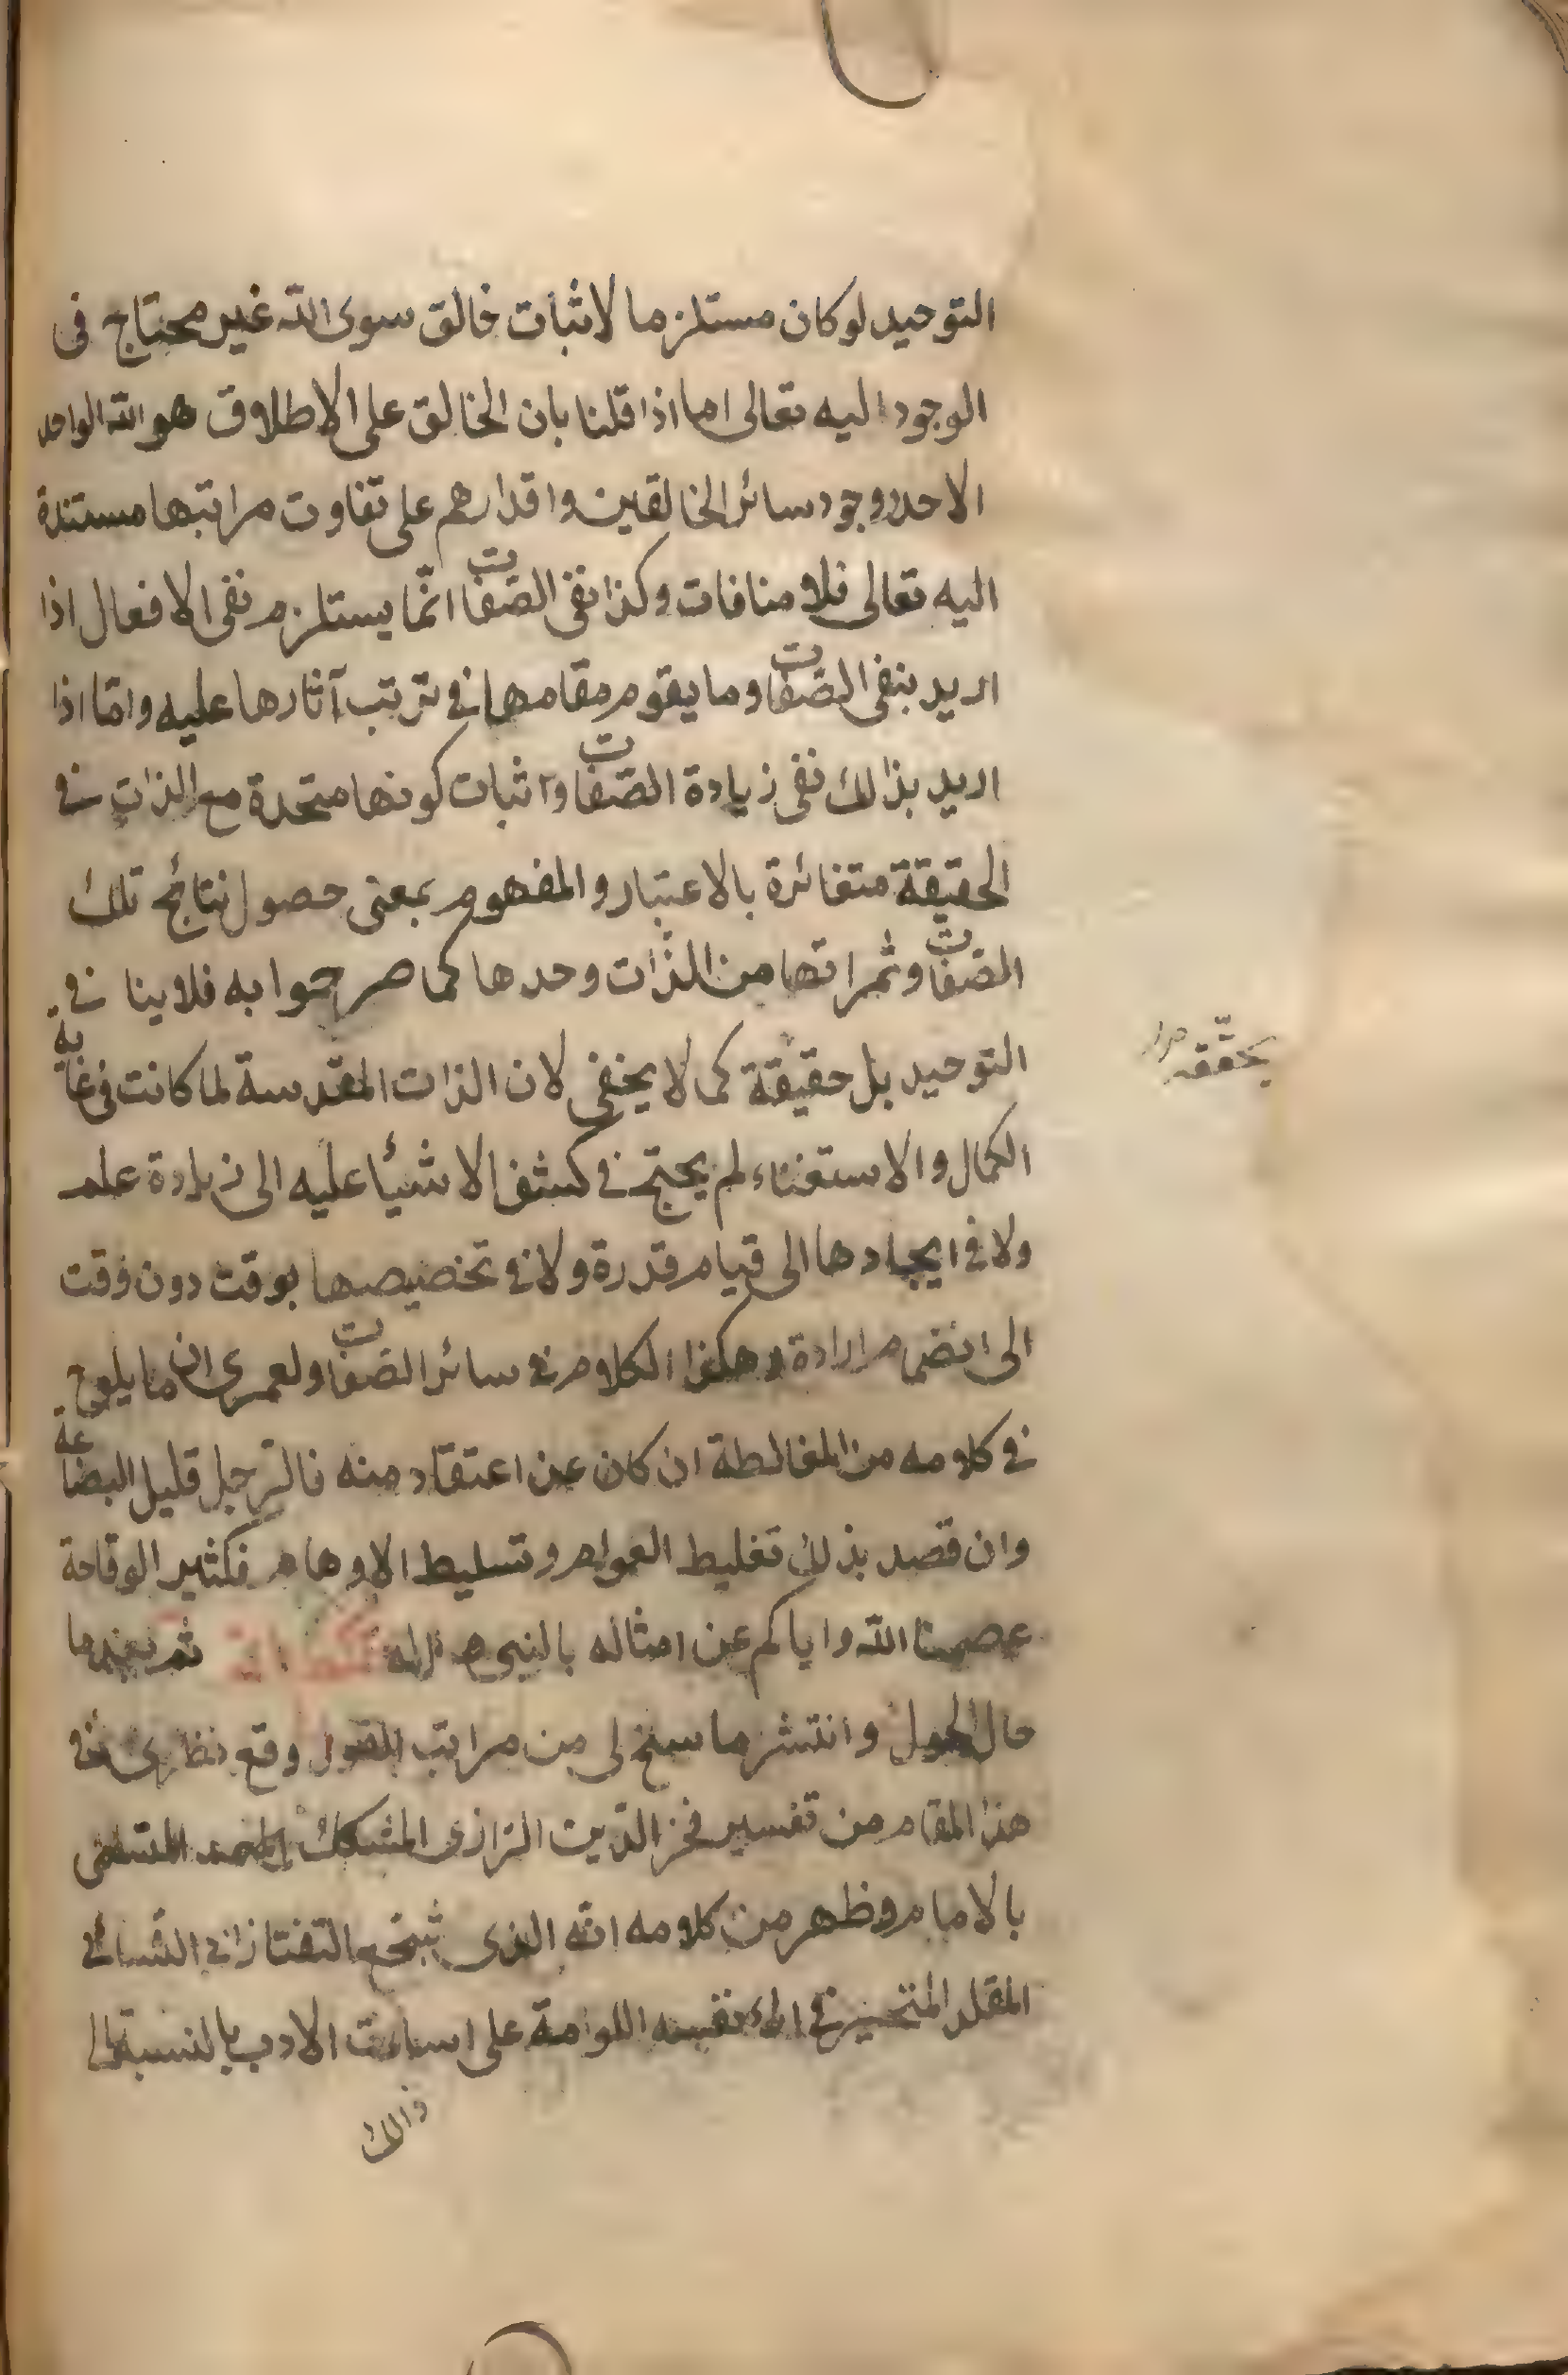 التوحيد لو كان مستلزما لاثبات خالق سوى الله غير محتاج فى
الوجود اليه تعالى اما اذا قلنا بان الخالق على الاطلاق هو الله الواحد
الاحد ووجود سائر الخالقين واقدارهم على تفاوت مراتبها مستندة
اليه تعالى فلا منافات وكذا نفى الصّفات انّما يستلزم نفى الافعال اذا
اريد بنفى الصّفات وما يقوم مقامها فى ترتب آثارها عليه وامّا اذا
اريد بذالك نفى زيادة الصّفات واثبات كونها متحدة مع الذات فى
الحقيقة متغائرة بالاعتبار والمفهوم بمعنى حصول نتائج تلك
الصّفات وثمراتها من الذّات وحدها كما صرحوا به فلا ينافى
التوحيد بل حقيقة كما لا يخفى لان الذات المقدسة لما كانت فى غاية
يحقّقه
الكمال والاستغناء لم يحتج فى كشف الاشيأ عليه الى زيادة علم
ولا فى ايجادها الى قيام قدرة ولا فى تخصيصها بوقت دون وقت
الى انضمام ارادة وهكذا الكلام فى سائر الصفات ولعمرى ان ما يلوح
فى كلامه من المغالطة ان كان عن اعتقاد منه فالرّجل قليل البضاعة
وان قصد بذلك تغليط العوام وتسليط الاوهام فكثير الوقاحة
عصمنا الله واياكم عن امثاله بالنبى و اله ثم بعدما
حال الحول وانتشر ما سنح لى من مراتب القول وقع نظرى فى
هذا المقام من تفسير فخر الدّين الرّازى المشكك الملحد المتسمى
بالامام وظهر من كلامه انّه الذى شجّع التفتازانى الشافى
المقلد المتحير فى امر نفسه اللوامة على اسائت الادب بالنسبة الى
ذالك